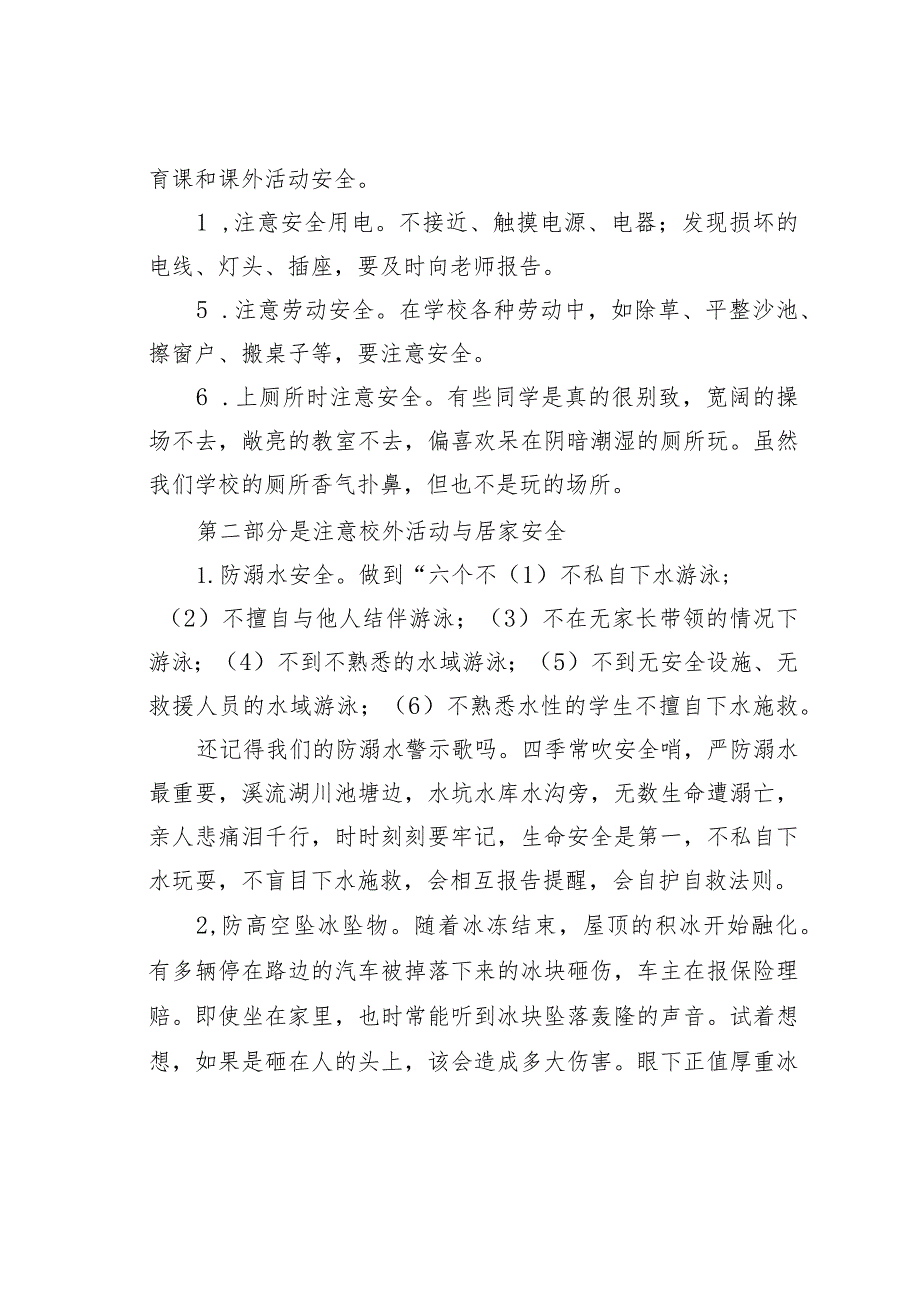 育课和课外活动安全。
1 ,注意安全用电。不接近、触摸电源、电器；发现损坏的
电线、灯头、插座，要及时向老师报告。
5 .注意劳动安全。在学校各种劳动中，如除草、平整沙池、
擦窗户、搬桌子等，要注意安全。
6 .上厕所时注意安全。有些同学是真的很别致，宽阔的操
场不去，敞亮的教室不去，偏喜欢呆在阴暗潮湿的厕所玩。虽然
我们学校的厕所香气扑鼻，但也不是玩的场所。
第二部分是注意校外活动与居家安全
1.防溺水安全。做到“六个不（1）不私自下水游泳;
（2）不擅自与他人结伴游泳；（3）不在无家长带领的情况下
游泳；（4）不到不熟悉的水域游泳；（5）不到无安全设施、无
救援人员的水域游泳；（6）不熟悉水性的学生不擅自下水施救。
还记得我们的防溺水警示歌吗。四季常吹安全哨，严防溺水
最重要，溪流湖川池塘边，水坑水库水沟旁，无数生命遭溺亡，
亲人悲痛泪千行，时时刻刻要牢记，生命安全是第一，不私自下
水玩耍，不盲目下水施救，会相互报告提醒，会自护自救法则。
2,防高空坠冰坠物。随着冰冻结束，屋顶的积冰开始融化。
有多辆停在路边的汽车被掉落下来的冰块砸伤，车主在报保险理
赔。即使坐在家里，也时常能听到冰块坠落轰隆的声音。试着想
想，如果是砸在人的头上，该会造成多大伤害。眼下正值厚重冰